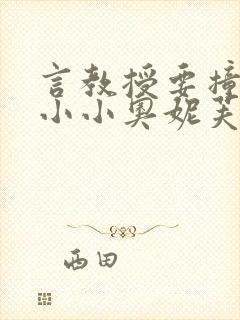 言教授要撞
小小奥妮芙
西田